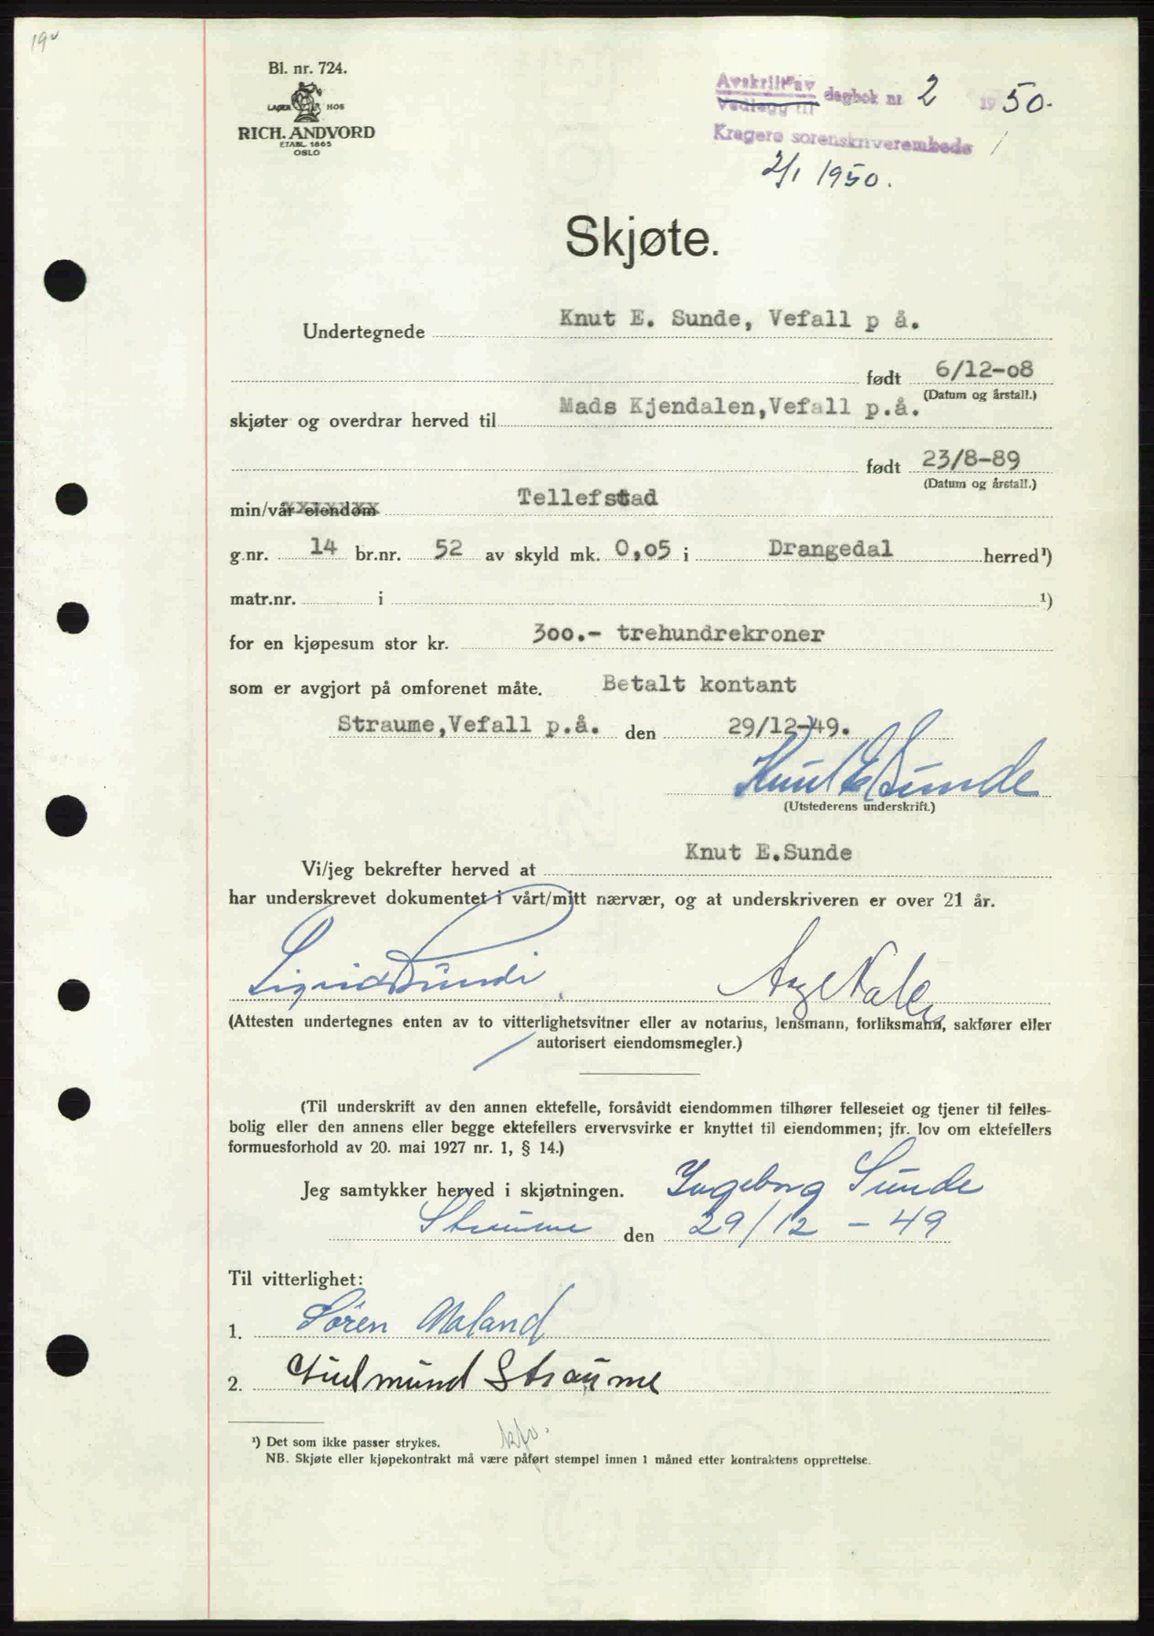 19
Bl. nr. 724.
LAGER HOS
RICH. ANDVORD
ETABL. 1865
OSLO
Avskrift av
Vedlegg til dagbok nr. 2 1950.
Kragerø sorenskriverembede
2/1 1950.
Skjøte.
Undertegnede Knut E. Sunde, Vefall p å.
født 6/12-08
(Datum og årstall.)
skjøter og overdrar herved til Mads Kjendalen,Vefall p.å.
født 23/8-89
(Datum og årstall.)
min/vår eiendom Tellefstad
g.nr. 14 br.nr. 52 av skyld mk. 0,05 i Drangedal herred¹)
matr.nr. i ¹)
for en kjøpesum stor kr. 300.- trehundrekroner
som er avgjort på omforenet måte. Betalt kontant
Straume,Vefall p.å. den 29/12-49.
Knut E Sunde
(Utstederens underskrift.)
Vi/jeg bekrefter herved at Knut E.Sunde
har underskrevet dokumentet i vårt/mitt nærvær, og at underskriveren er over 21 år.
Sigrid Sunde
(Attesten undertegnes enten av to vitterlighetsvitner eller av notarius, lensmann, forliksmann, sakfører eller
autorisert eiendomsmegler.)
(Til underskrift av den annen ektefelle, forsåvidt eiendommen tilhører felleseiet og tjener til felles-
bolig eller den annens eller begge ektefellers ervervsvirke er knyttet til eiendommen; jfr. lov om ektefellers
formuesforhold av 20. mai 1927 nr. 1, § 14.)
Jeg samtykker herved i skjøtningen. Ingeborg Sunde
Straume den 29/12 - 49
Til vitterlighet:
1. Sören Aaland
2. Gudmund Straume
¹) Det som ikke passer strykes.
NB. Skjøte eller kjøpekontrakt må være påført stempel innen 1 måned etter kontraktens opprettelse.